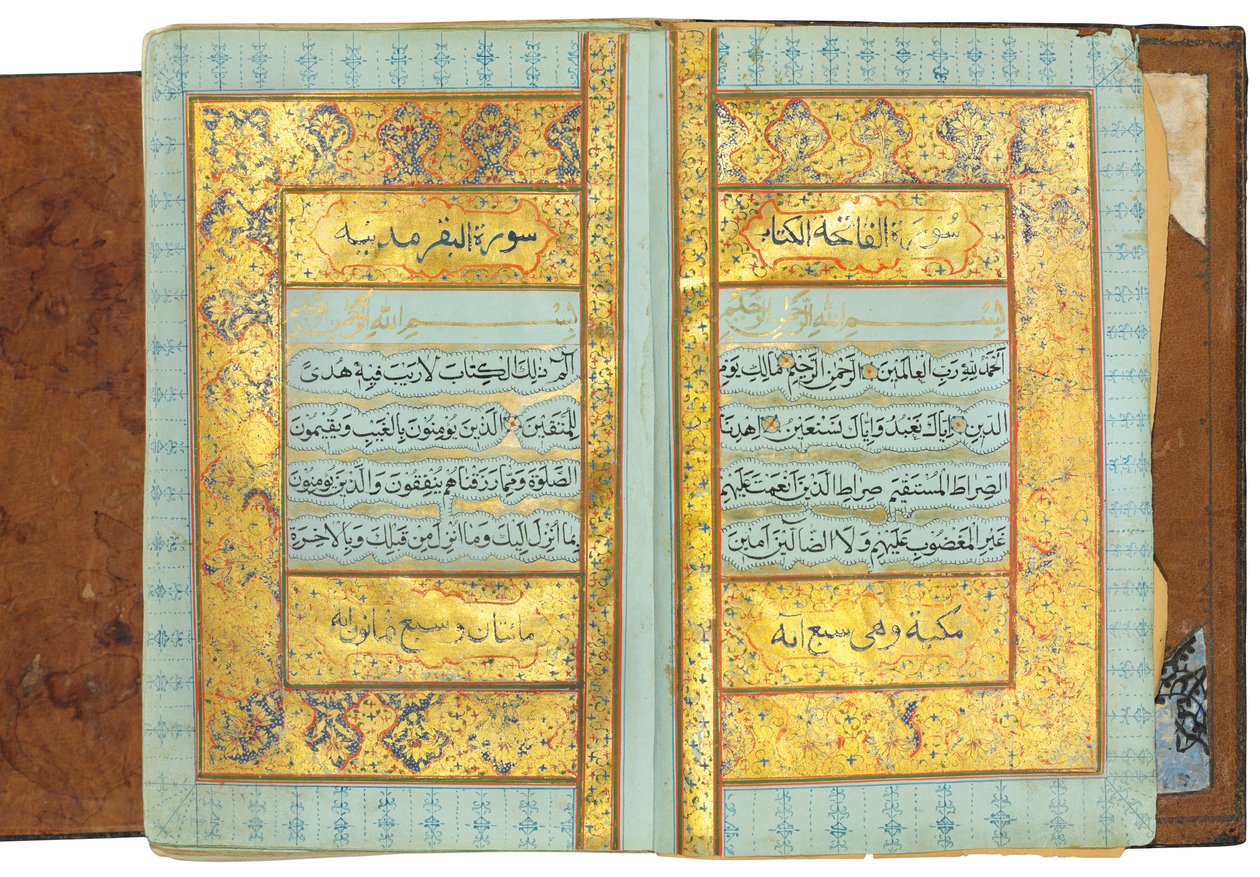 سُورَة الفاتحة الكتاب
بِسْمِ اللهِ الرَّحْمٰنِ الرَّحِيْمِ
اَلْحَمْدُ لِلّٰهِ رَبِّ الْعَالَمِيْنَ الرَّحْمٰنِ الرَّحِيْمِ مَالِكِ يَوْمِ
الدِّيْنِ اِيَّاكَ نَعْبُدُ وَاِيَّاكَ نَسْتَعِيْنَ اِهْدِنَا
الصِّرَاطَ الْمُسْتَقِيْمَ صِرَاطَ الَّذِيْنَ اَنْعَمْتَ عَلَيْهِمْ
غَيْرِ الْمَغْضُوْبِ عَلَيْهِمْ وَلَا الضَّالِّيْنَ آمِيْنَ
مكية وهى سبع آية
سورة البقر مدنيه
بِسْمِ اللهِ الرَّحْمٰنِ الرَّحِيْمِ
الٓمٓ ذٰلِكَ الْكِتَابُ لَا رَيْبَ فِيْهِ هُدًى
لِلْمُتَّقِيْنَ الَّذِيْنَ يُؤْمِنُوْنَ بِالْغَيْبِ وَيُقِيْمُوْنَ
الصَّلٰوةَ وَمِمَّا رَزَقْنَاهُمْ يُنْفِقُوْنَ وَالَّذِيْنَ يُؤْمِنُوْنَ
بِمَا اُنْزِلَ اِلَيْكَ وَمَا اُنْزِلَ مِنْ قَبْلِكَ وَبِالْاٰخِرَةِ
مائتان و سبع ثمانون آيه